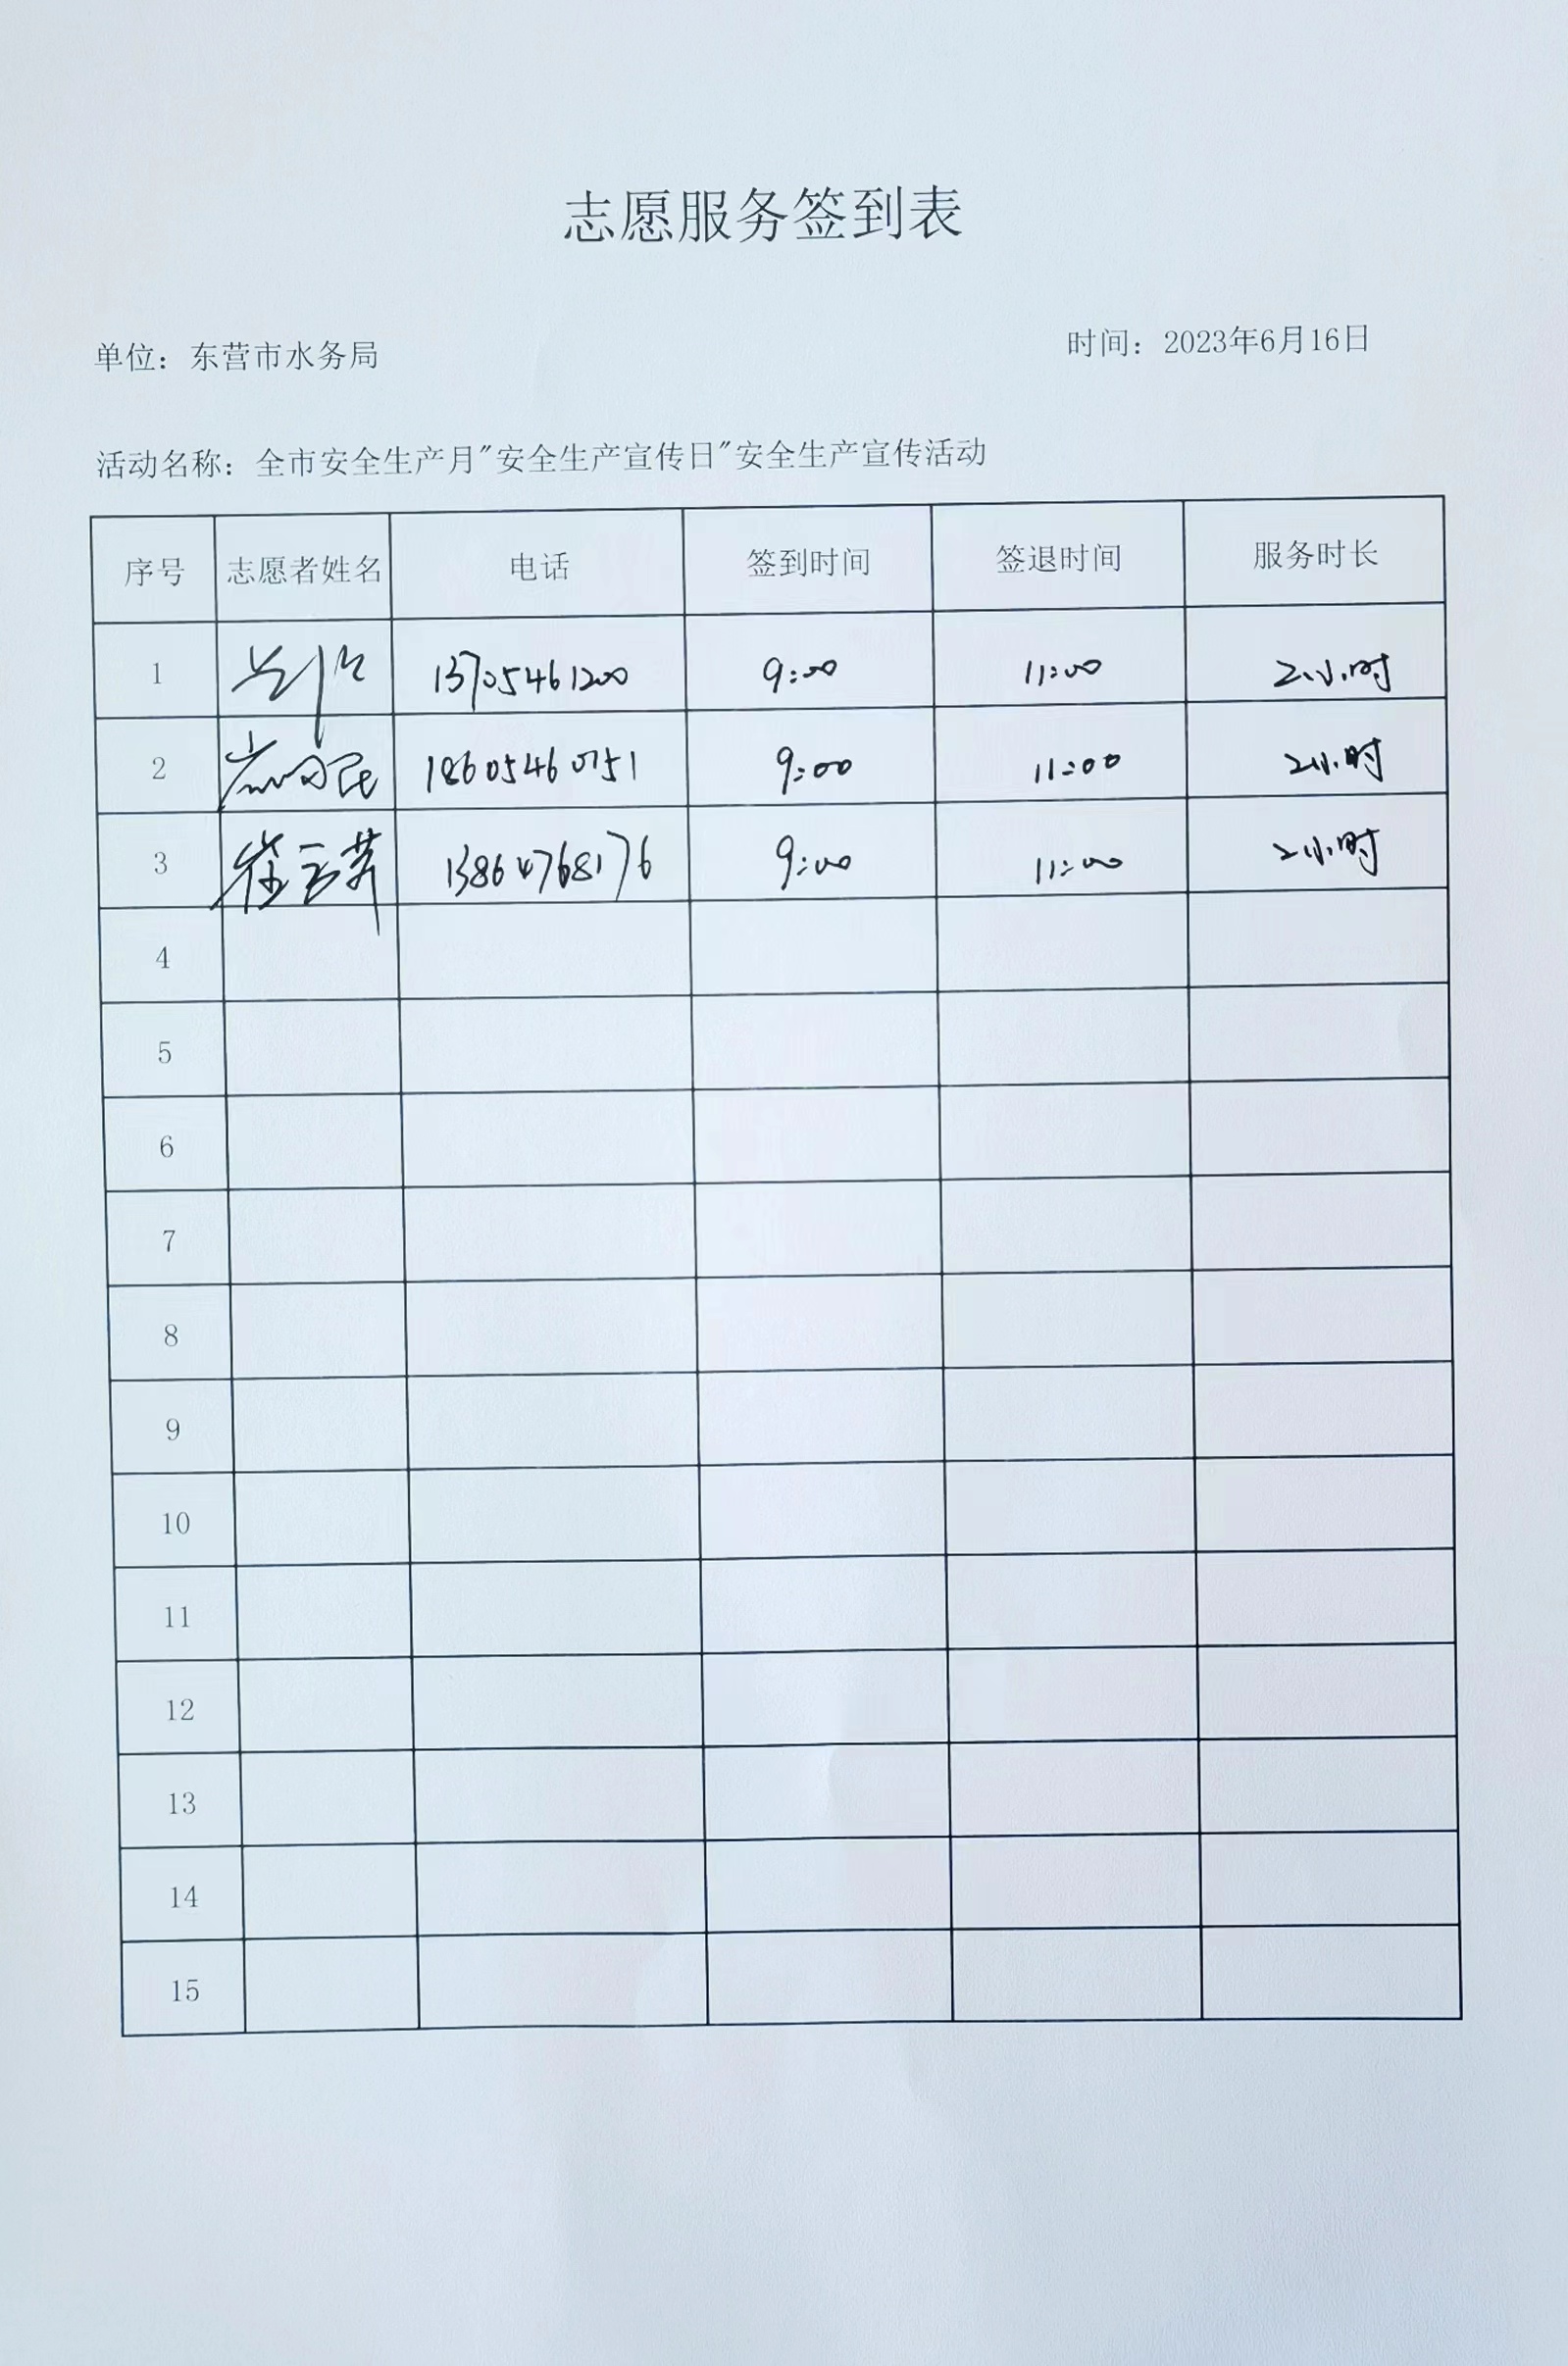 志愿服务签到表
单位：东营市水务局 时间：2023年6月16日
活动名称：全市安全生产月"安全生产宣传日"安全生产宣传活动
序号 志愿者姓名 电话 签到时间 签退时间 服务时长
1 13705461200 9:00 11:00 2小时
2 18605460751 9:00 11:00 2小时
3 13864768176 9:00 11:00 2小时
4
5
6
7
8
9
10
11
12
13
14
15